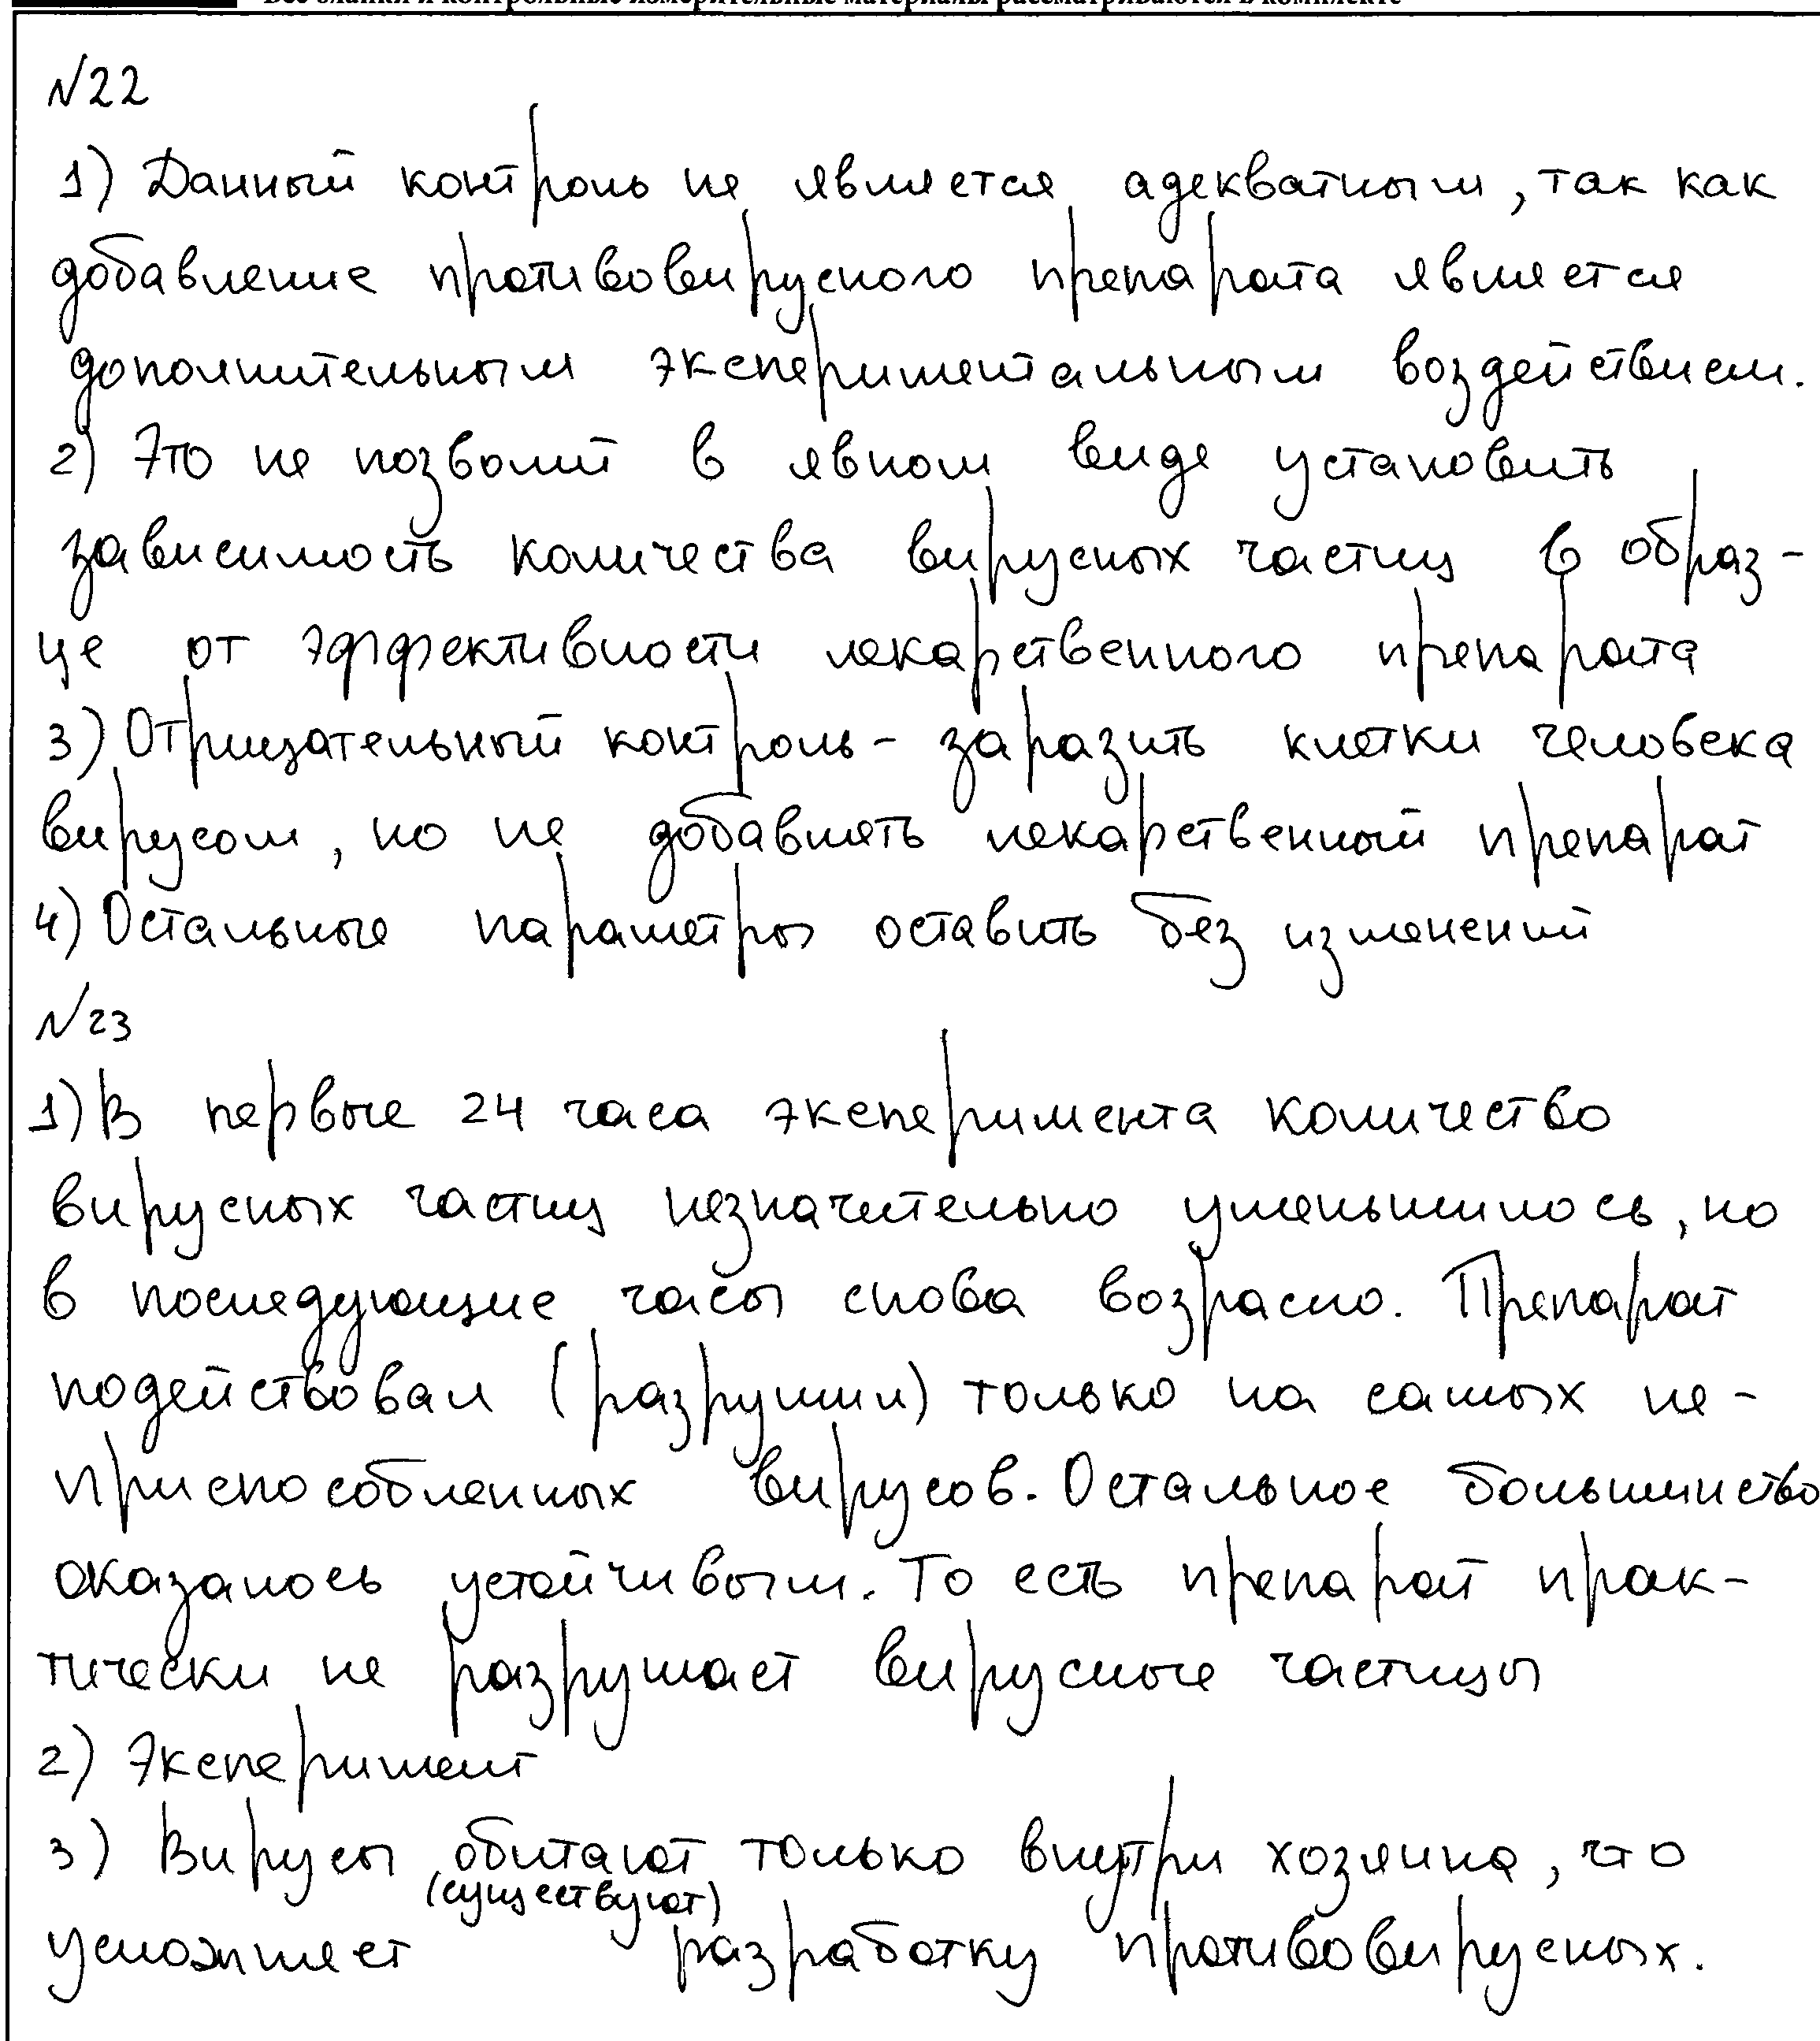 Все бланки и контрольные измерительные материалы рассматриваются в комплекте
№22
1) Данный контроль не является адекватным, так как
добавление противовирусного препарата является
дополнительным экспериментальным воздействием.
2) Это не позволит в явном виде установить
зависимость количества вирусных частиц в образ-
це от эффективности лекарственного препарата
3) Отрицательный контроль - заразить клетки человека
вирусом, но не добавлять лекарственный препарат
4) Остальные параметры оставить без изменений
№23
1) В первые 24 часа эксперимента количество
вирусных частиц незначительно уменьшилось, но
в последующие часы снова возрасло. Препарат
подействовал (разрушил) только на самых не-
приспособленных вирусов. Остальное большинство
оказалось устойчивым. То есть препарат прак-
тически не разрушает вирусные частицы
2) Эксперимент
3) Вирусы обитают только внутри хозяина, что
(существуют)
усложняет разработку противовирусных.